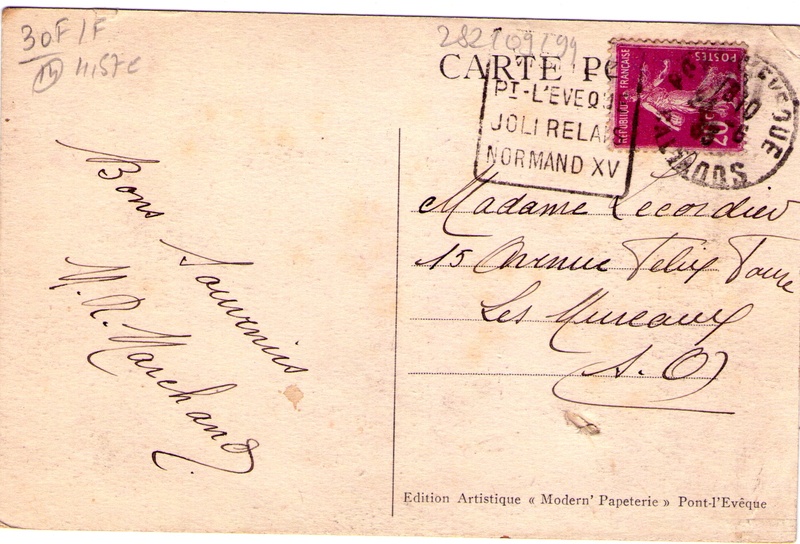 30F/F
CARTE PO
PT-L'EVEQU
JOLI RELAIS
NORMAND XV
REPUBLIQUE FRANÇAISE
POSTES
20c
L'EVEQUE
CALVADOS
Bons Souvenirs
M. R. Marchand
Madame Lecordier
15 Avenue Félix Faure
Les Mureaux
S. O
Edition Artistique « Modern' Papeterie » Pont-l'Evêque